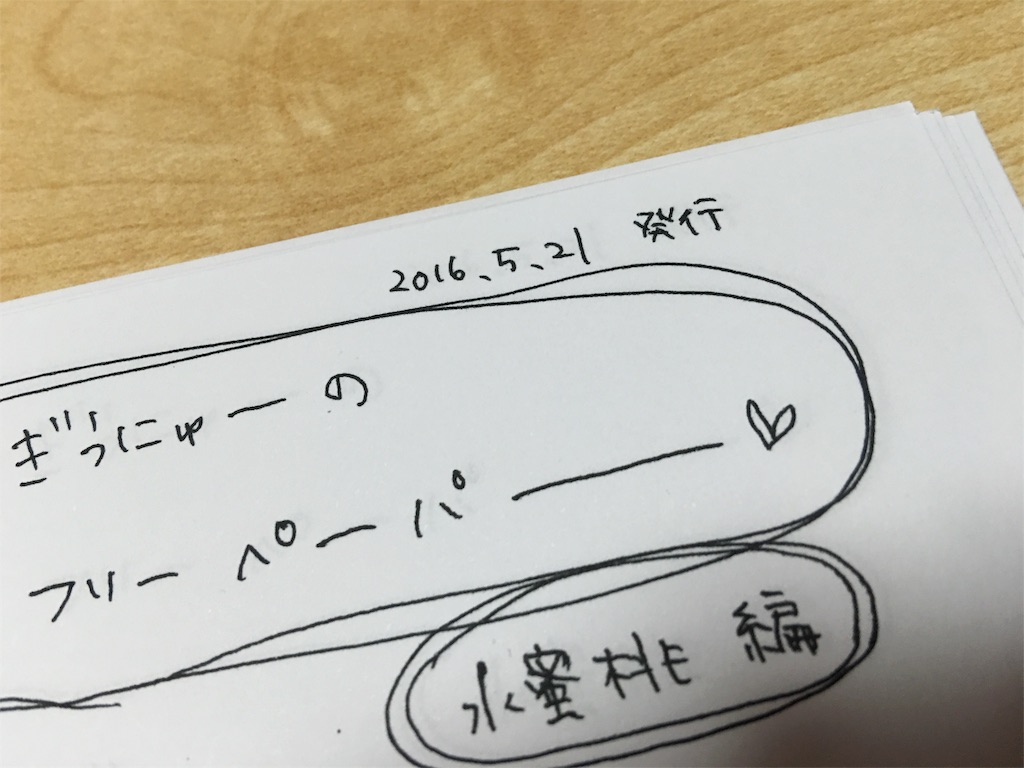 2016、5、21 発行
ぎうにゅーの
フリーペーパー♡
水蜜桃編